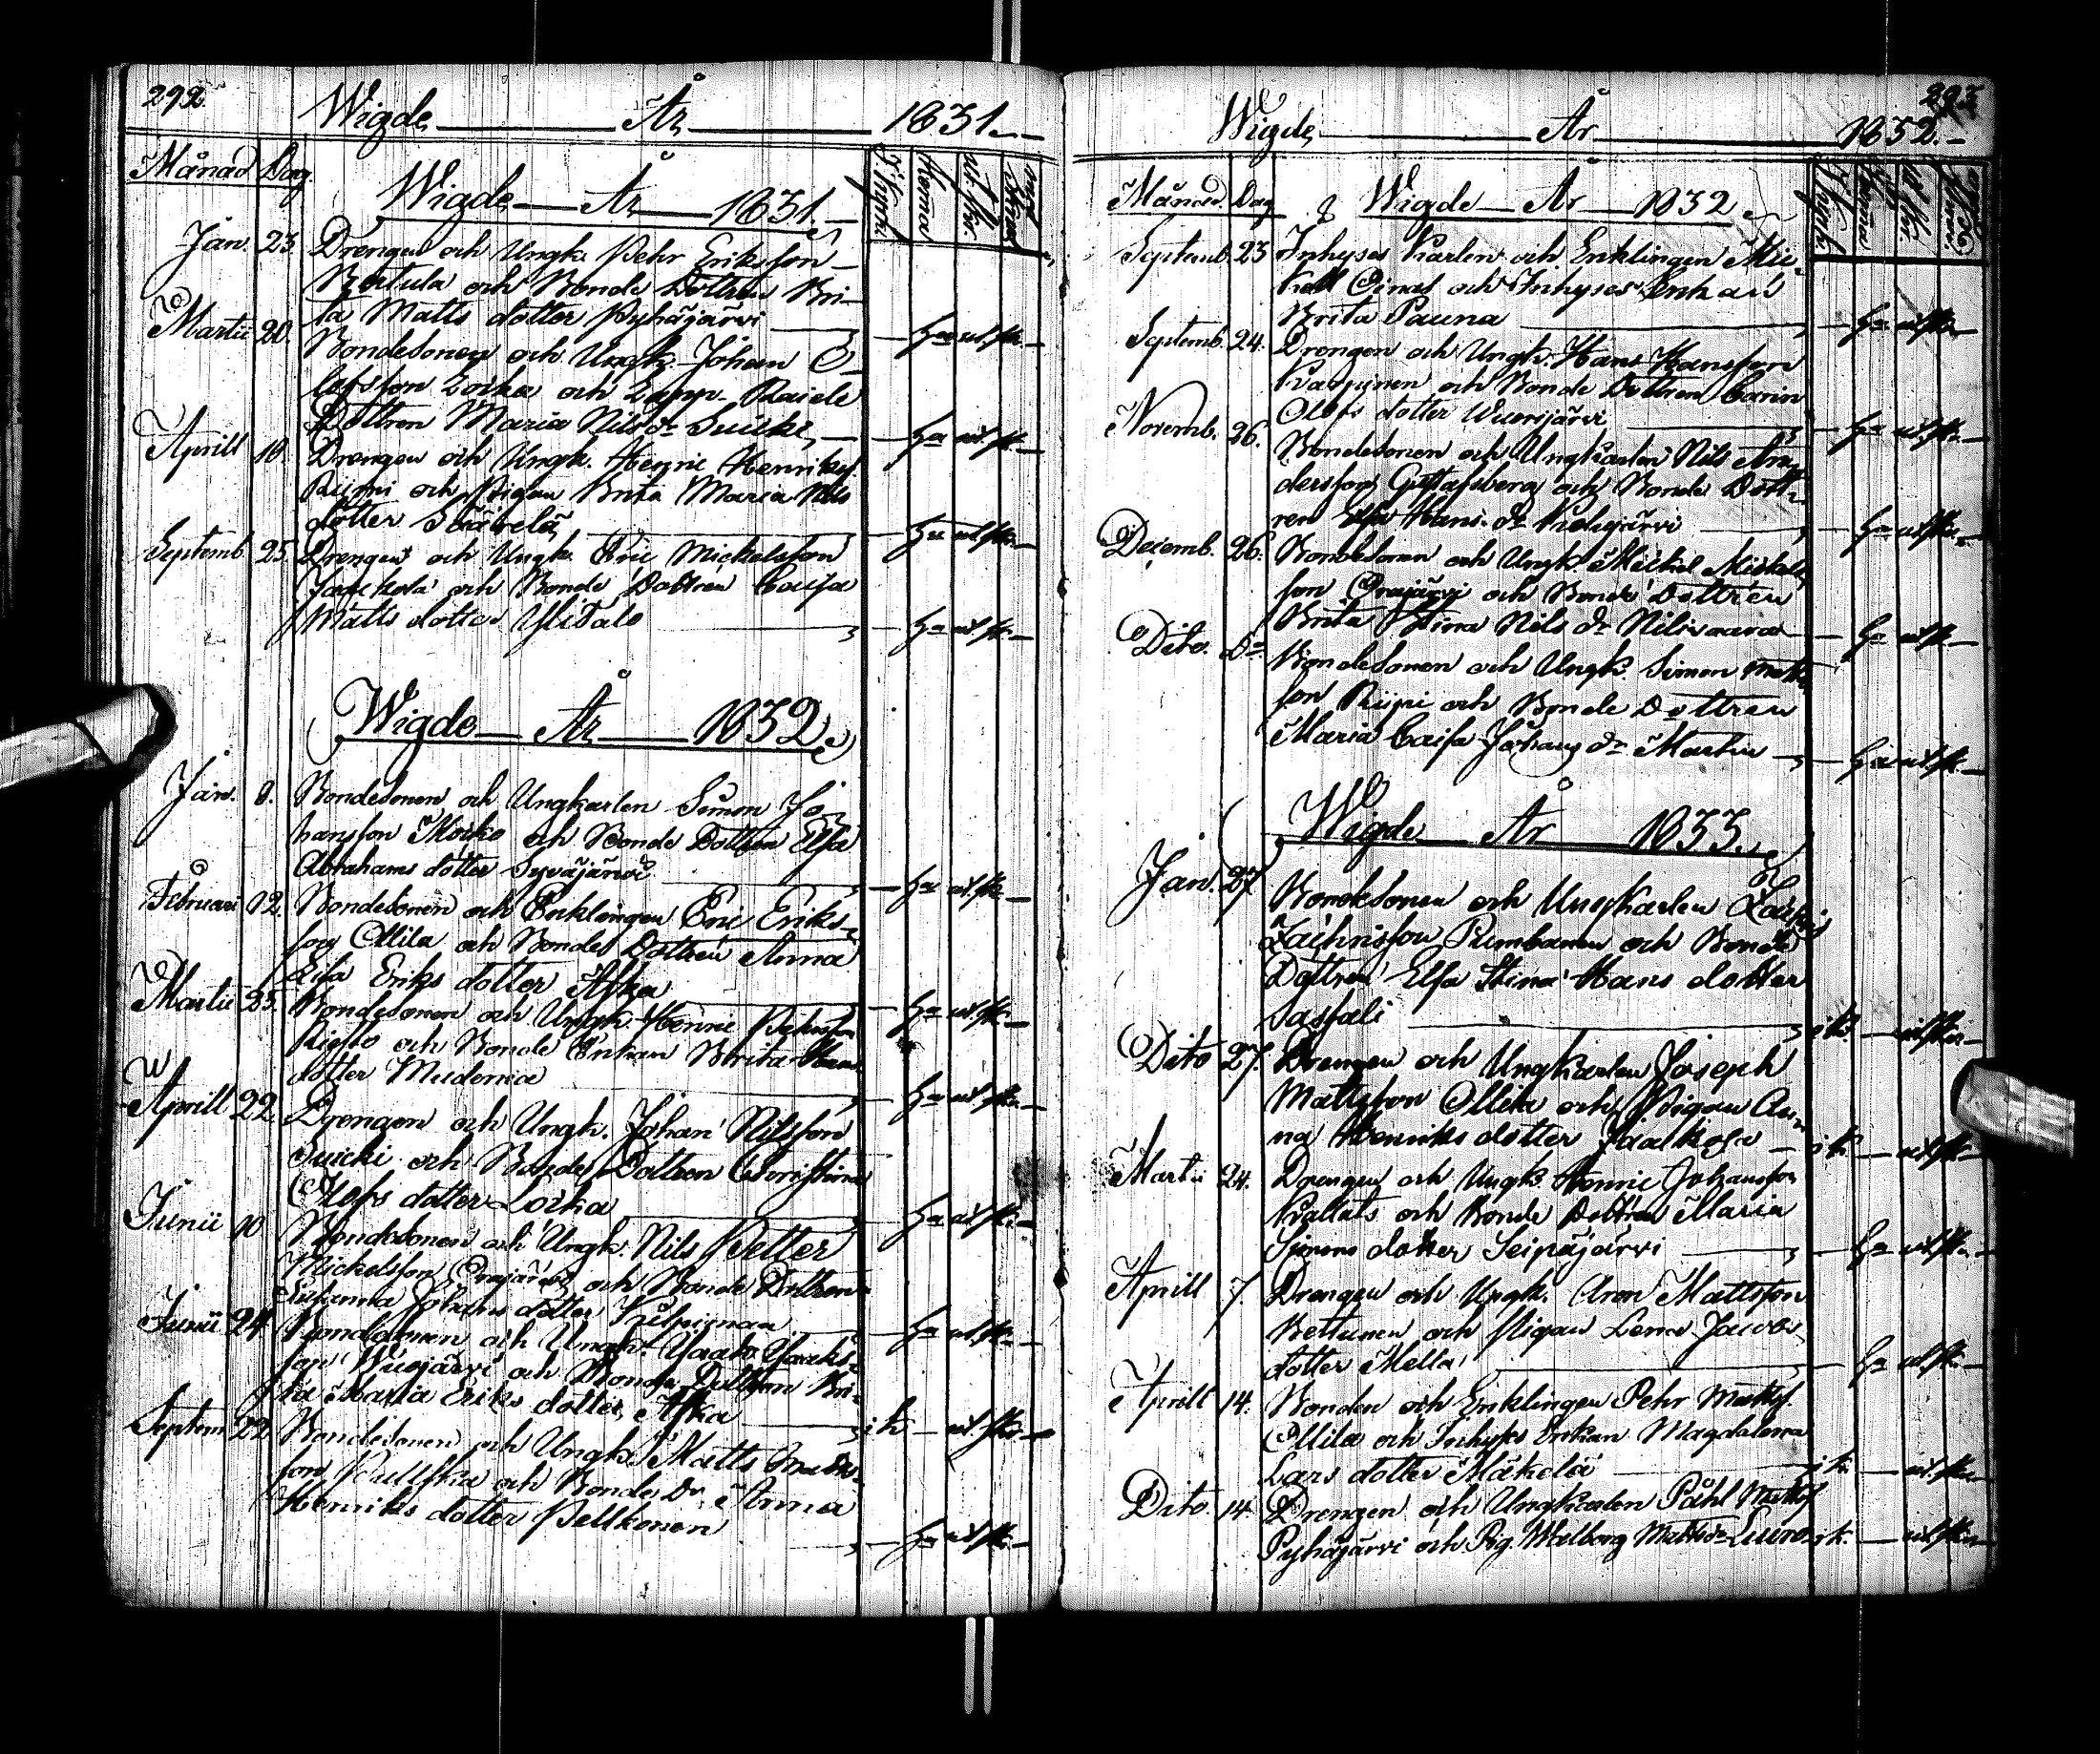 292.
Wigde År 1831.
Månad Dag. I Kyrk. Hema utskr. med skrud
Wigde År 1831.
Jan. 23 Drengen och Ungk. Pehr Eriksson
Bertula och Bonde Dottren Bri-
ta Matts dotter Pyhäjärvi Ha utsk.
Martii 20. Bondesonen och Ungk. Johan O-
lofsson Locka och Lapp.
Dottren Maria Nils dr Suicki Ha ut. sk.
Aprill 10. Drengen och Ungk. Henric Henriks.
och Pigan Brita Maria Nils
dotter Ha utsk.
Septemb. 25. Drengen och Ungk. Eric Mickelsson
och Bonde Dottren Caisa
Matts dotter Ylitalo Ha ut. sk.
Wigde År 1832.
Jan. 8. Bondesonen och Ungkarlen Simon Jo-
hansson och Bonde Dottren Elsa
Abrahams dotter Syväjärvi Ha ut. sk.
Februari 12. Bondesonen och Enklingen Eric Eriks-
son Ollila och Bonde Dottren Anna
Lisa Eriks dotter Aska Ha ut. sk.
Martii 25. Bondesonen och Ungk. Henric Pehrsson
och Bonde Enkan Brita
dotter Ha ut. sk.
Aprill 22. Drengen och Ungk. Johan Nilsson
Suicki och Bonde Dottren Christina
Olofs dotter Locka Ha ut. sk.
Junii 10 Bondesonen och Ungk. Nils Petter
Mickelsson Orajärvi och Bonde Dottren
Susanna Johans dotter Ha ut. sk.
Junii 24 Bondesonen och Ungk.
son och Bonde Dottren Bri-
ta Maria Eriks dotter Aska i k ut. sk.
Septem. 22 Bondesonen och Ungk. Matts
son och Bonde Dr Anna
Henriks dotter Pelkonen Ha ut. sk.
293
Wigde År 1832.
Månad. Dag Wigde År 1832
Septemb. 23 Inhyses Karlen och Enklingen Mic-
kell Oinas och Inhyses Enkan
Brita Pauna Ha ut. sk.
Septemb. 24. Drengen och Ungk. Hans Hansson
Karppinen och Bonde Dottren Carin
Olofs dotter Wuojärvi Ha ut. sk.
Novemb. 26. Bondesonen och Ungkarlen Nils An-
dersson Gustafsberg och Bonde Dott-
ren Elsa Hans dr Ha ut. sk.
Decemb. 26. Bondesonen och Ungk. Mickel Mickels-
son Orajärvi och Bonde Dottren
Brita Stina Nils dr Nilivaara Ha ut. sk.
Dito. Do Bondesonen och Ungk. Simon Matts-
son Riipi och Bonde Dottren
Maria Caisa Johans dr Martin Ha ut. sk.
Wigde År 1833.
Jan. 27. Bondesonen och Ungkarlen
Zachrisson Pumbanen och Bonde
Dottren Elsa Stina Hans dotter
Sassali i k. utsk.
Dito 27. Drengen och Ungkarlen Joseph
Mattsson Ollila och Pigan An-
na Henriks dotter i k. ut. sk.
Martii 24. Drengen och Ungk. Henric Johansson
och Bonde Dottren Maria
Simons dotter Seipäjärvi Ha ut. sk.
Aprill 7. Drengen och Ungk. Aron Mattsson
Kettunen och Pigan Lena Jacobs
dotter Mella Ha ut. sk.
Aprill 14. Bonden och Enklingen Pehr Matts.
Ollila och Inhyses Enkan Magdalena
Lars dotter Mäkelä i k. ut. sk.
Dito. 14. Drengen och Ungkarlen Påhl Matts.
Pyhäjärvi och Pig. Walborg Matts dr i k. ut. sk.